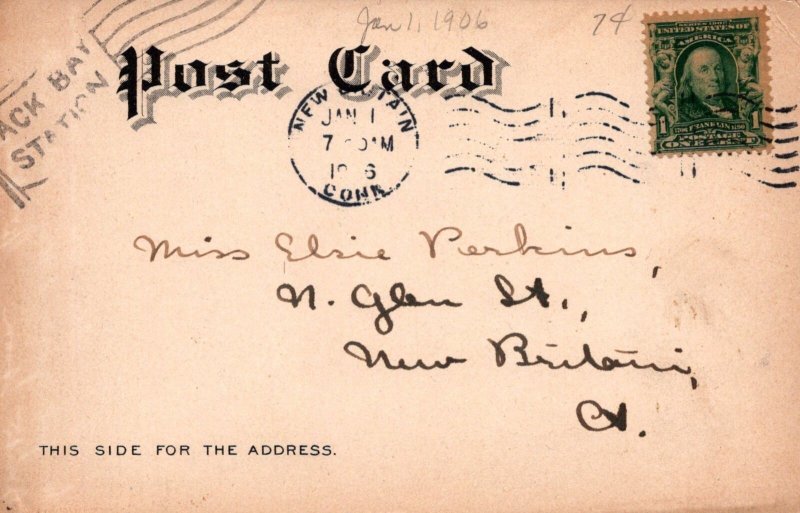 Jan 1, 1906
7¢
BACK BAY
STATION
Post Card
NEW BRITAIN
JAN 1
7 30 AM
1906
CONN.
SERIES 1902
UNITED STATES OF
AMERICA
1 1
1706 FRANKLIN 1790
POSTAGE
ONE CENT
Miss Elsie Perkins,
N. Glen St.,
New Britain,
Ct.
THIS SIDE FOR THE ADDRESS.